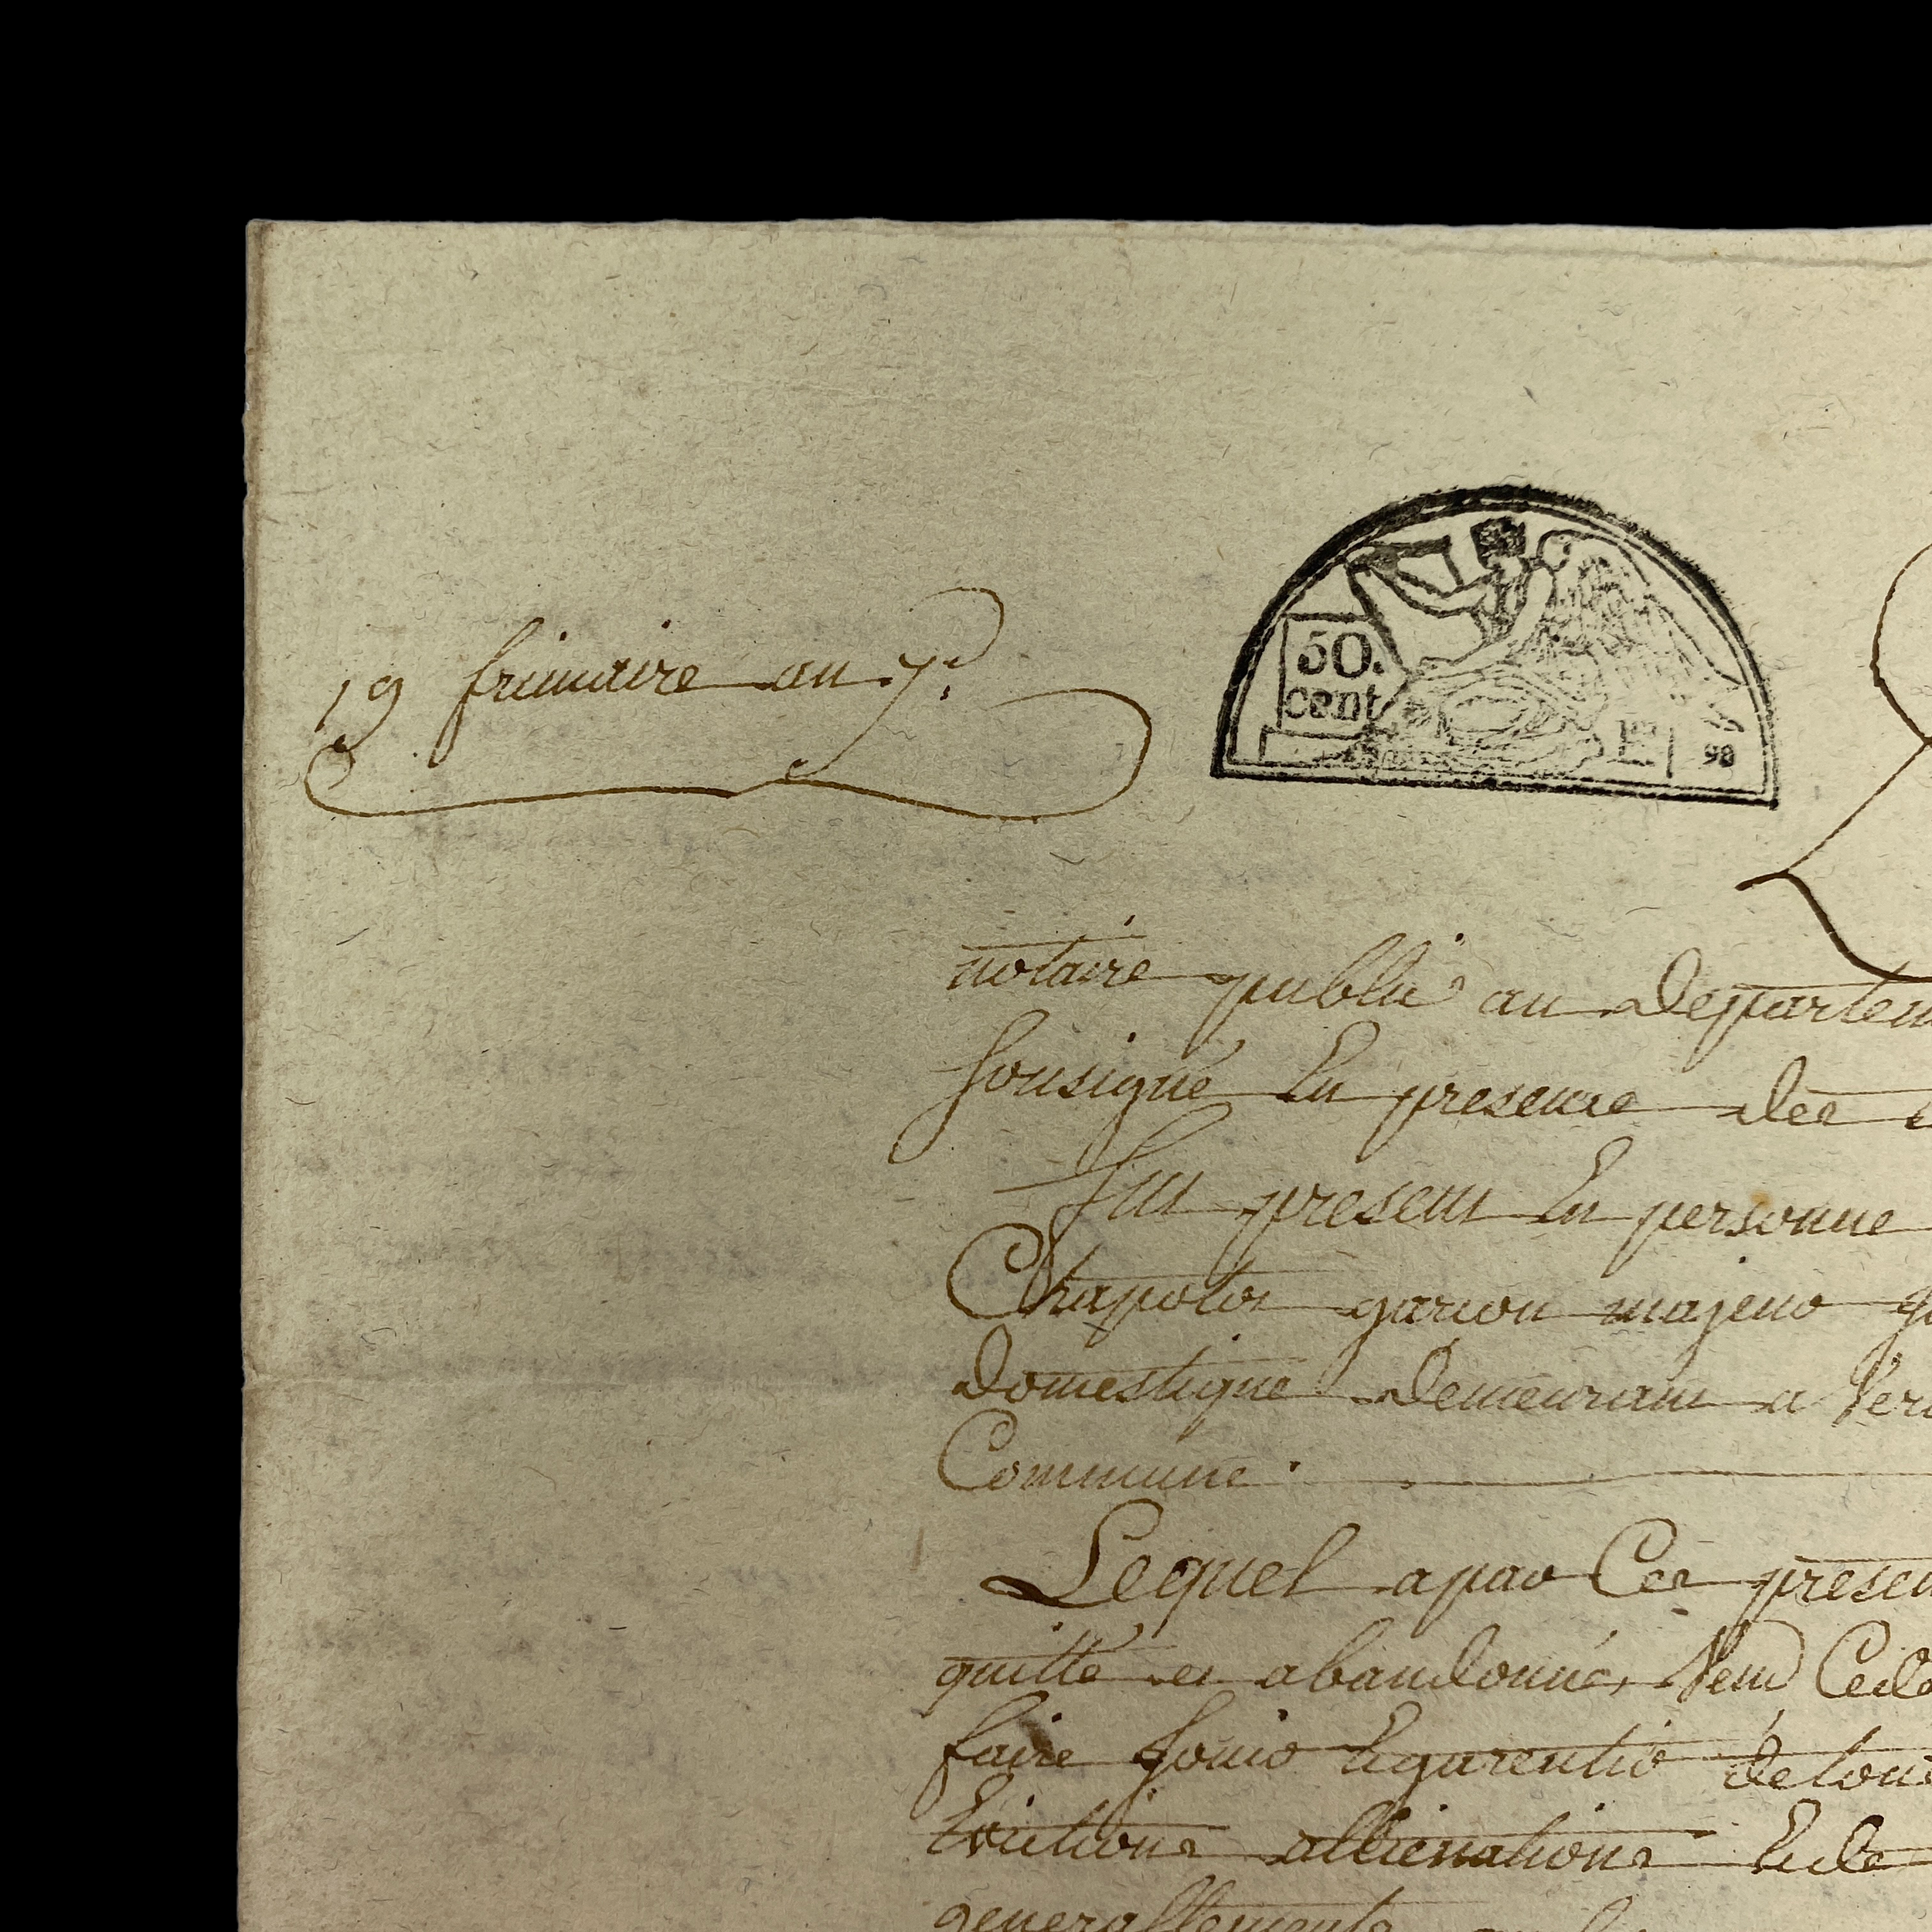 19 frimaire an 7.e
50.
cent
98
notaire public au departem
sousigné En presence des
fut present En personne
Chapotot garcon majeur
domestique demeurant a
Commune.
Lequel apar Ces presen
quitté et abandonné, Vend Cede
faire jouir Egarentir de tou
Evictions allienations Ede
generallements